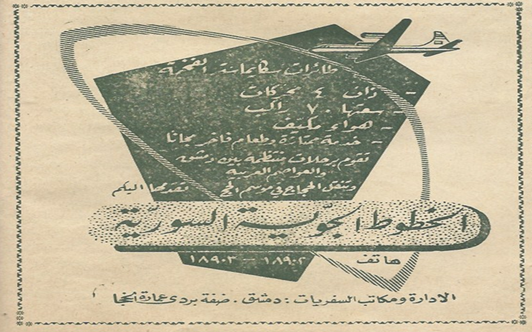 طائرات سكايماستر الفخمة
- ذات ٤ محركات
- سعتها ٧٠ راكب
- هواء مكيف
- خدمة ممتازة وطعام فاخر مجاناً
تقوم برحلات منتظمة بين دمشق
والعواصم العربية
وتنقل الحجاج في موسم الحج
تقدمها اليكم
الخطوط الجوية السورية
هاتف ١٨٩٠٢ - ١٨٩٠٣
الادارة ومكاتب السفريات : دمشق . ضفة بردى عمارة الحجا